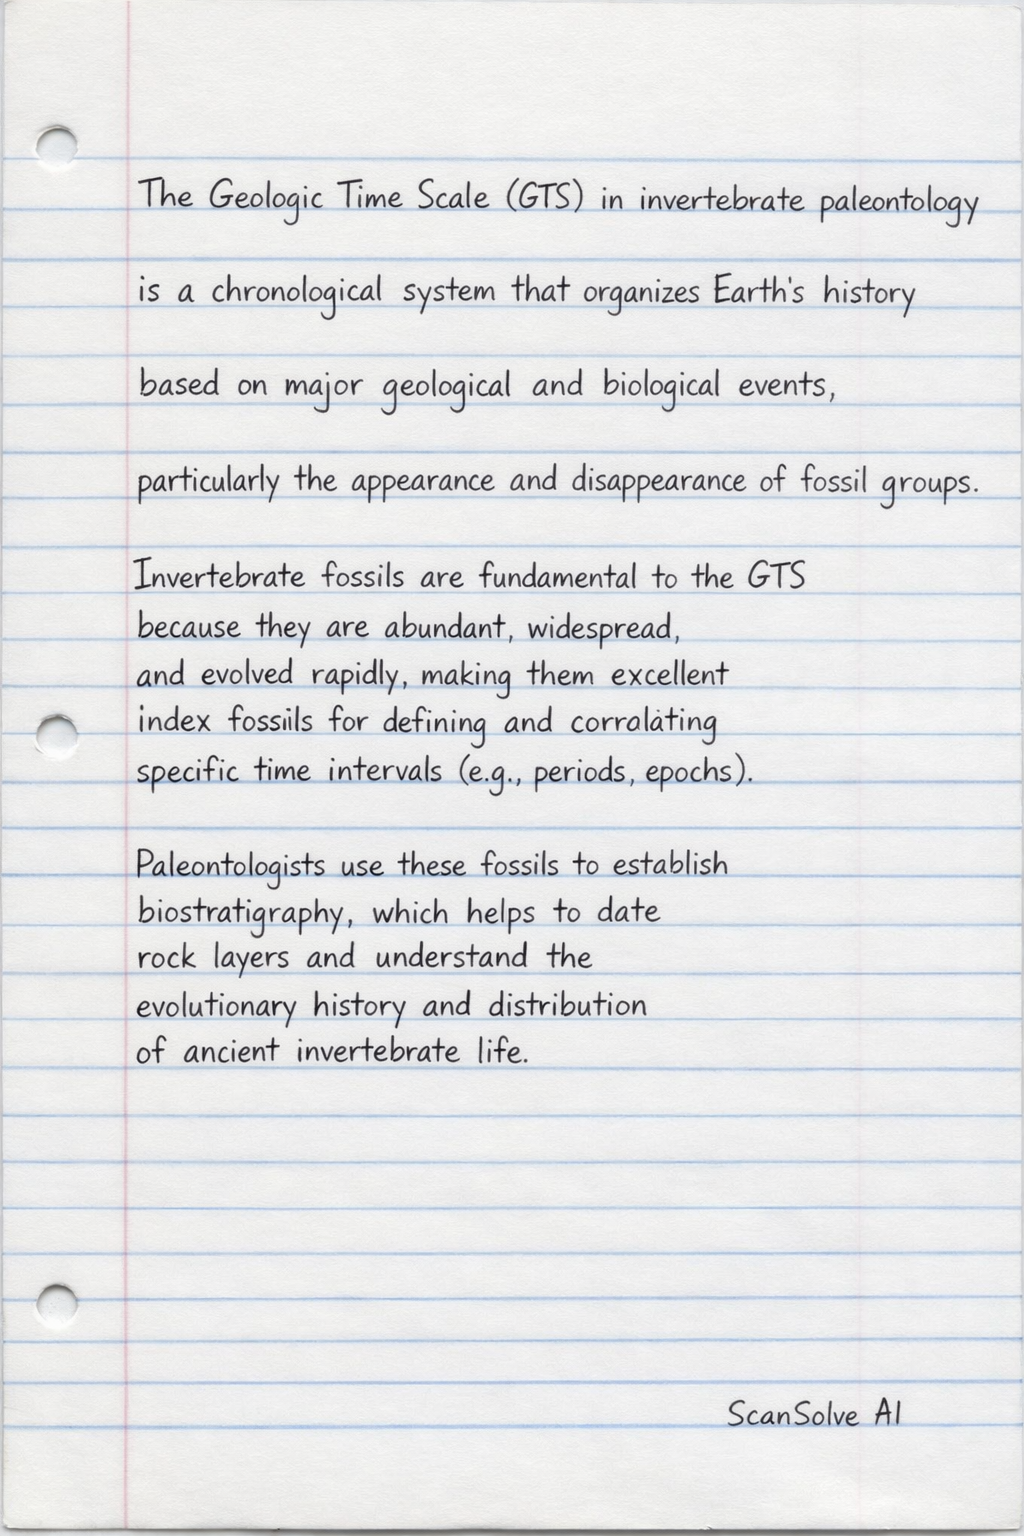 The Geologic Time Scale (GTS) in invertebrate paleontology
is a chronological system that organizes Earth's history
based on major geological and biological events,
particularly the appearance and disappearance of fossil groups.
Invertebrate fossils are fundamental to the GTS
because they are abundant, widespread,
and evolved rapidly, making them excellent
index fossils for defining and corralating
specific time intervals (e.g., periods, epochs).
Paleontologists use these fossils to establish
biostratigraphy, which helps to date
rock layers and understand the
evolutionary history and distribution
of ancient invertebrate life.
ScanSolve AI